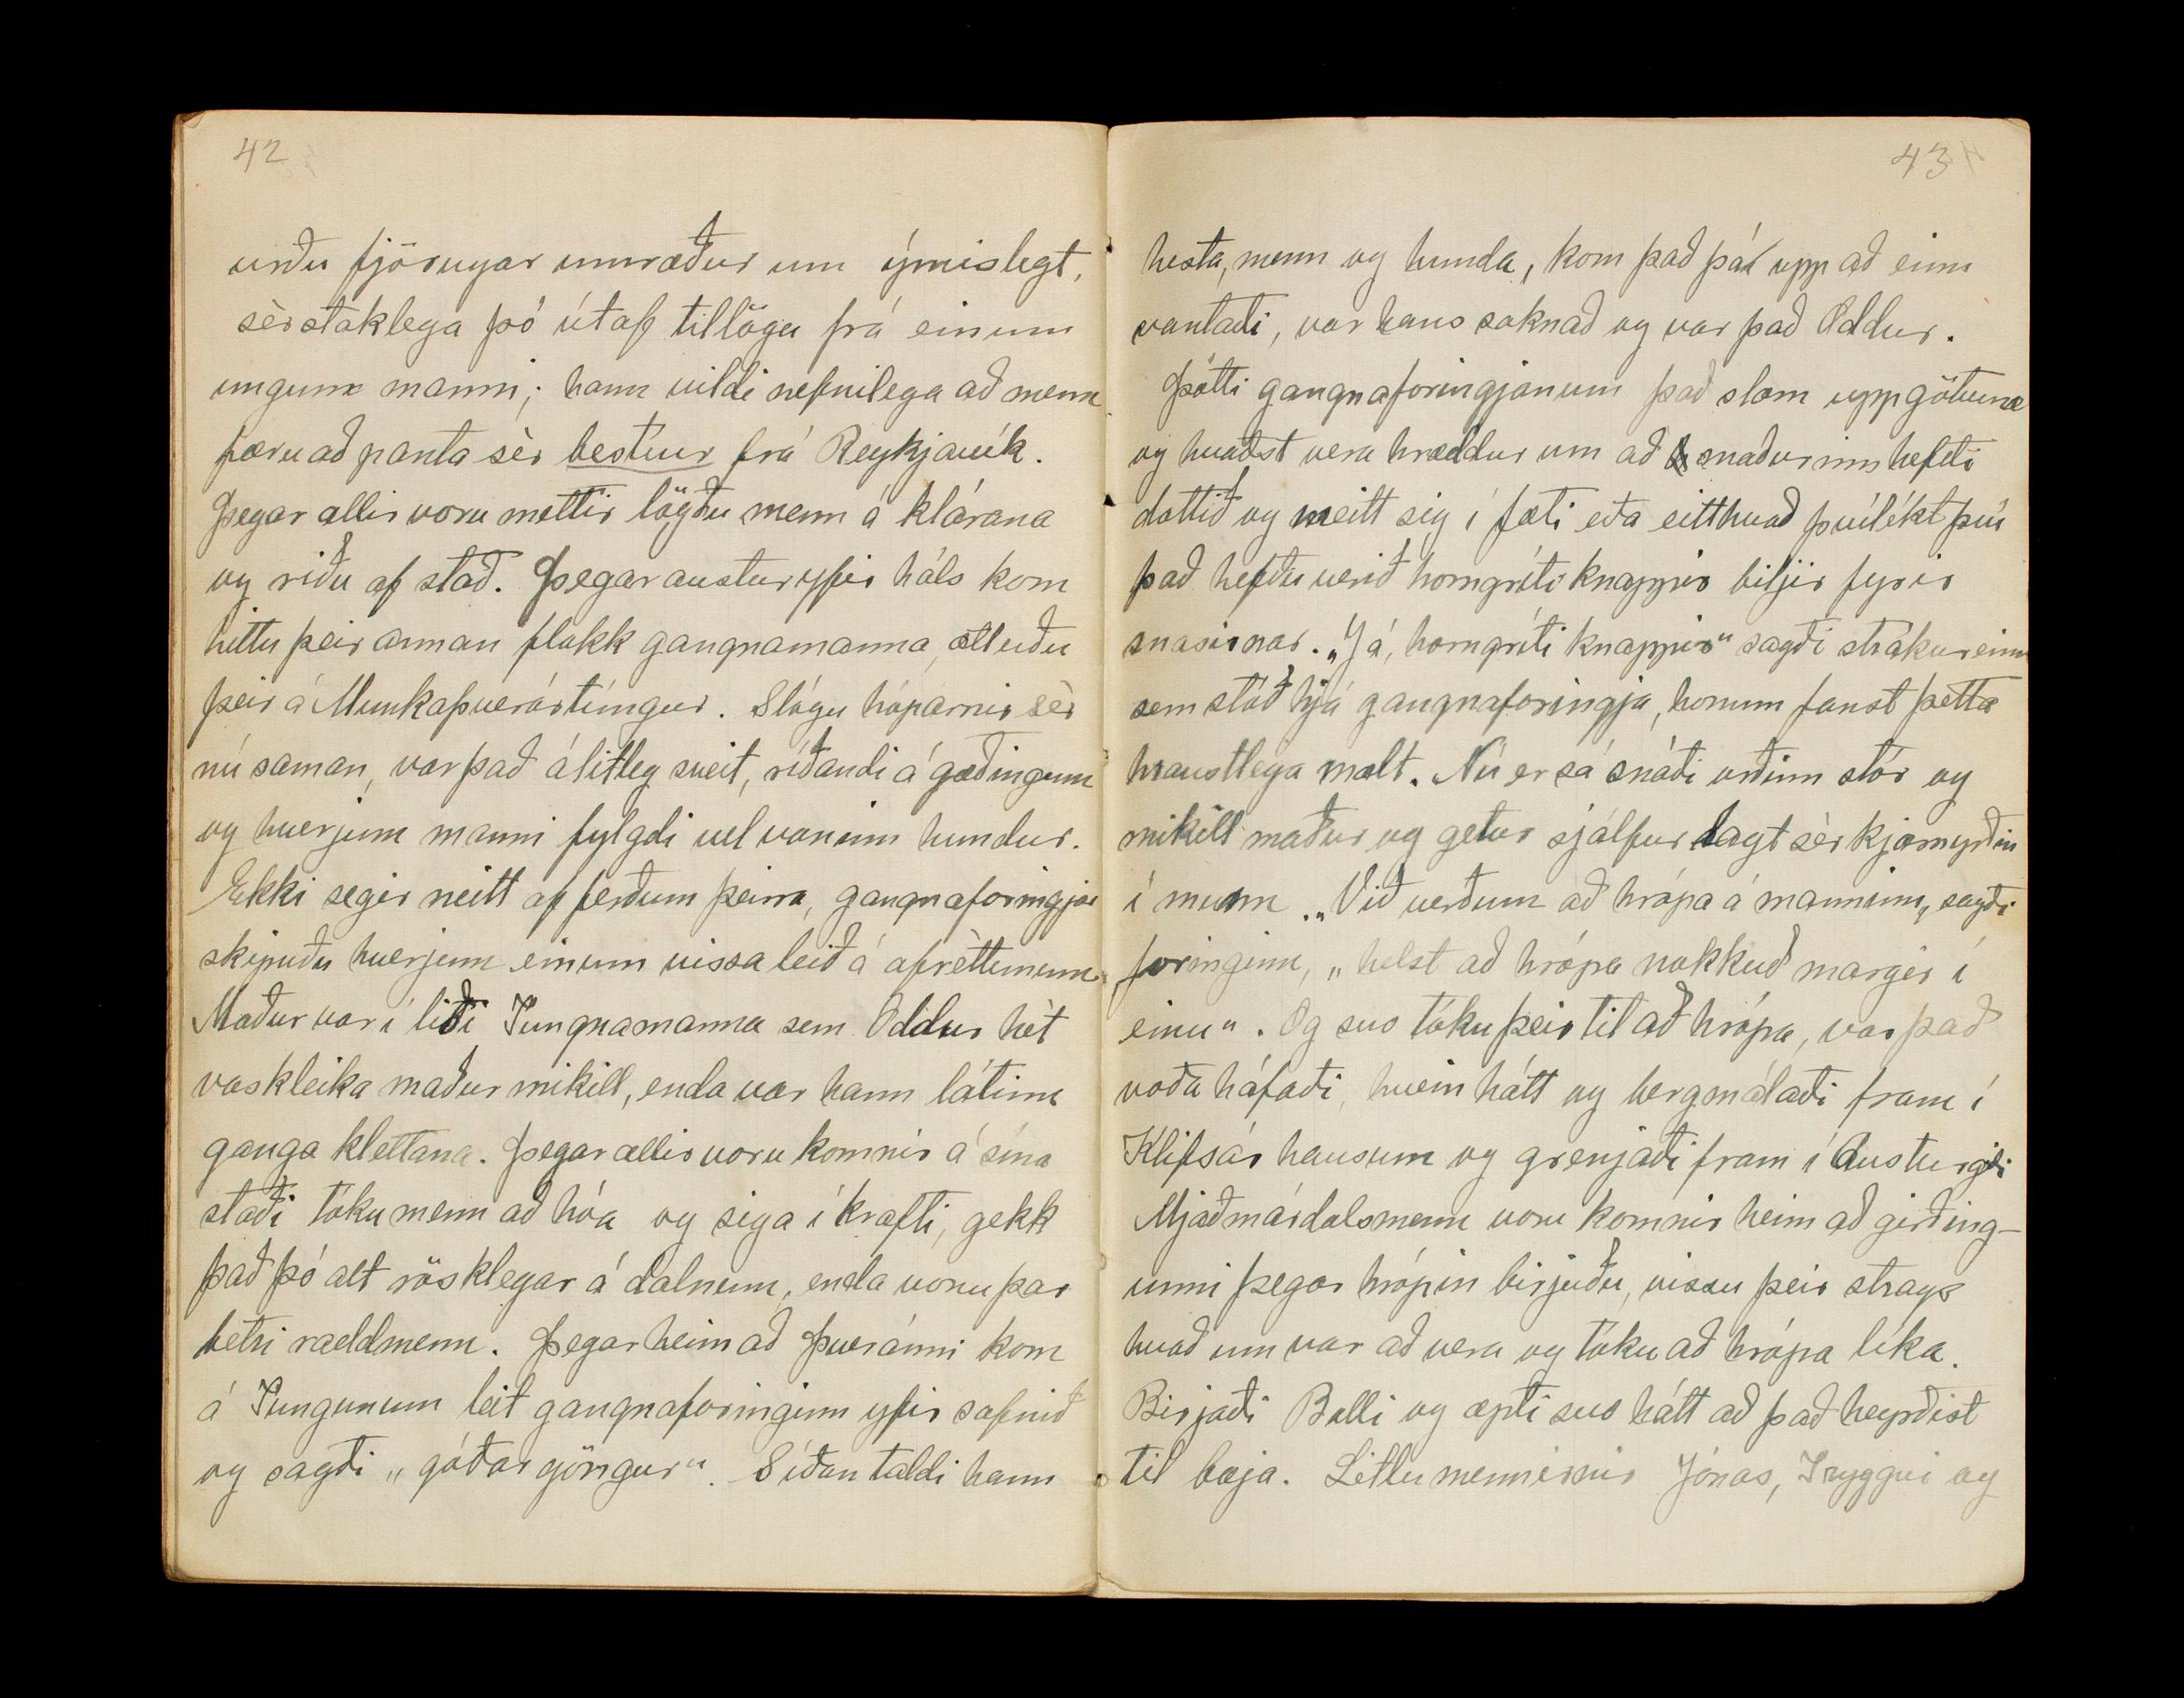 42
urðu fjörugar umræður um ýmislegt,
sèrstaklega þó útaf tillögu frá einum
ungum manni; hann vildi nefnilega að menn
færu að panta sèr bestíur frá Reykjavík.
Þegar allir voru mettir lögðu menn á klárana
og riðu af stað. Þegar austur yfir háls kom
hittu þeir annan flokk gangnamanna, ætluðu
þeir á Munkaþverártúngur. Slógu hóparnir sèr
nú saman, var það álitleg sveit, ríðandi á gæðingum
og hverjum manni fylgdi vel vaninn hundur.
Ekki segir neitt af ferðum þeirra, gangnaforingjar
skipuðu hverjum einum vissa leið á afrèttinum.
Maður var í liði Tungnamanna sem Oddur hèt
vaskleika maður mikill, enda var hann látinn
ganga klettana. Þegar allir voru komnir á sína
staði tóku menn að hóa og siga í krafti, gekk
það þó alt rösklegar á dalnum, enda voru þar
betri raddmenn. Þegar heim að Þveránni kom
á Tungunum leit gangnaforinginn yfir safnið
og sagði „góðar göngur“. Síðan taldi hann
43
hesta, menn og hunda, kom það þá upp að einn
vantaði, var hans saknað og var það Oddur.
Þótti gangnaforingjanum það slæm uppgötvun
og kvaðst vera hræddur um að maðurinn hefði
dottið og meitt sig í fæti eða eitthvað þvílíkt því
það hefðu verið horngríti knappir biljir fyrir
snasirnar. „Já, horngríti knappir“ sagði strákur einn
sem stóð hjá gangnaforingja, honum fanst þetta
hraustlega mælt. Nú er sá snáði orðinn stór og
mikill maður og getur sjálfur lagt sèr kjarnyrðin
í munn. „Við verðum að hrópa á manninn„ sagði
foringinn, „helst að hrópa nokkuð margir í
einu“. Og svo tóku þeir til að hrópa, var það
voða háfaði, hvein hátt og bergmálaði fram í
Klifsár hausum og grenjaði fram í Austurgili
Mjaðmárdalsmenn voru komnir heim að girðing-
unni þegar hrópin birjuðu, vissu þeir strags
hvað um var að vera og tóku að hrópa líka.
Birjaði Balli og æpti svo hátt að það heyrðist
til bæja. Litlu mennirnir Jónas, Tryggvi og